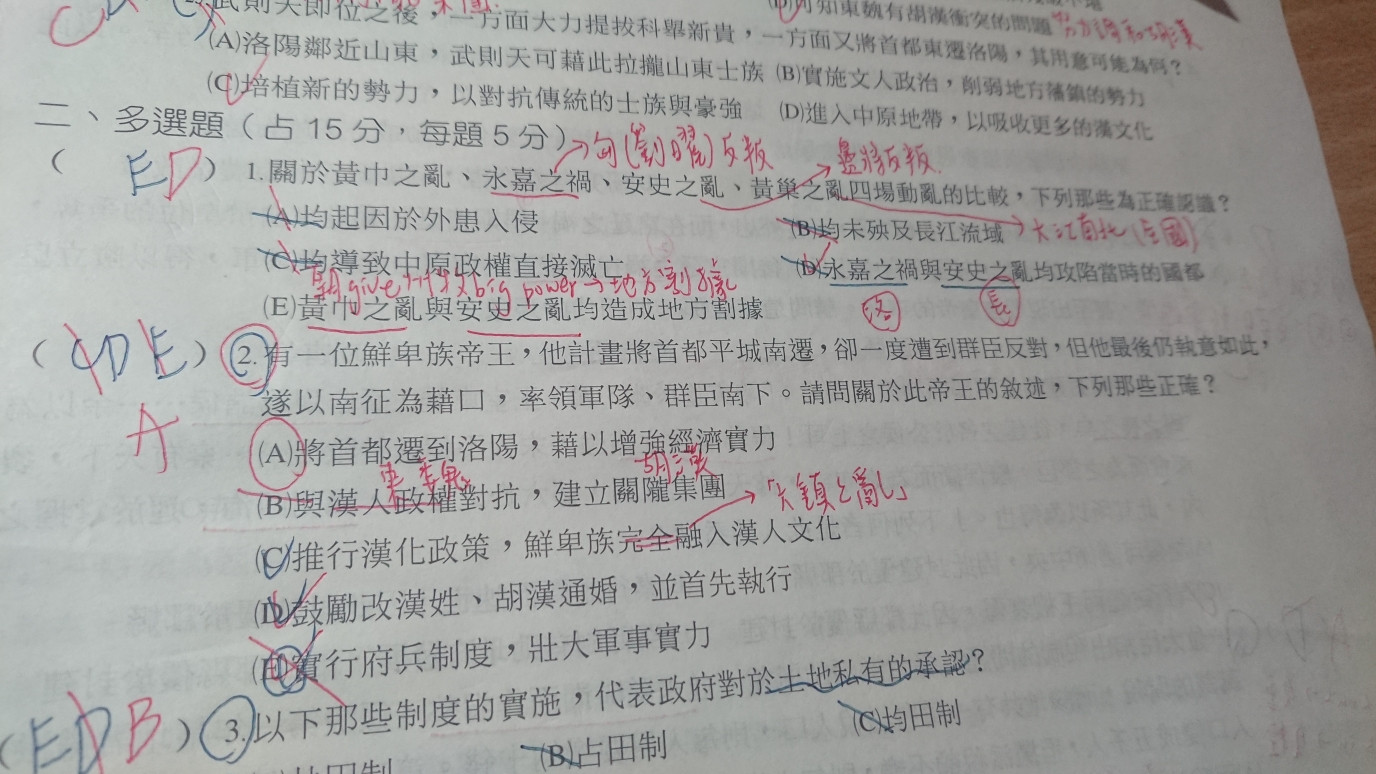 武則天即位之後,一方面大力提拔科舉新貴,一方面又將首都東遷洛陽,其用意可能為何?
(A)洛陽鄰近山東,武則天可藉此拉攏山東士族 (B)實施文人政治,削弱地方藩鎮的勢力
(C)培植新的勢力,以對抗傳統的士族與豪強 (D)進入中原地帶,以吸收更多的漢文化
二、多選題(占15分,每題5分)
匈(劉曜)反叛
邊將反叛
( ED ) 1.關於黃巾之亂、永嘉之禍、安史之亂、黃巢之亂四場動亂的比較,下列那些為正確認識?
(A)均起因於外患入侵 (B)均未殃及長江流域 大江南北(全國)
(C)均導致中原政權直接滅亡 (D)永嘉之禍與安史之亂均攻陷當時的國都
朝give big power→地方割據
洛 長
(E)黃巾之亂與安史之亂均造成地方割據
( DE ) 2.有一位鮮卑族帝王,他計畫將首都平城南遷,卻一度遭到群臣反對,但他最後仍執意如此,
遂以南征為藉口,率領軍隊、群臣南下。請問關於此帝王的敘述,下列那些正確?
A
(A)將首都遷到洛陽,藉以增強經濟實力
東魏 胡漢
(B)與漢人政權對抗,建立關隴集團
「六鎮之亂」
(C)推行漢化政策,鮮卑族完全融入漢人文化
(D)鼓勵改漢姓、胡漢通婚,並首先執行
(E)實行府兵制度,壯大軍事實力
( EDB ) 3.以下那些制度的實施,代表政府對於土地私有的承認?
(B)占田制 (C)均田制